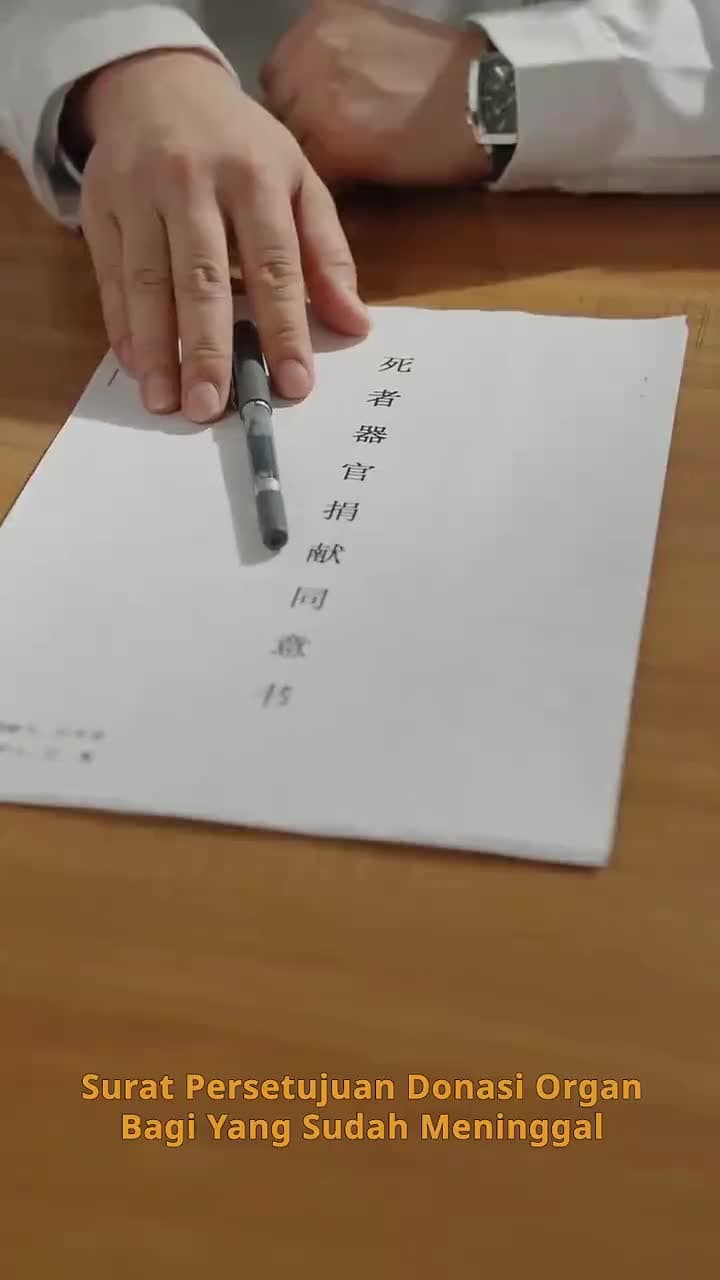 死者器官捐献同意书
Surat Persetujuan Donasi Organ
Bagi Yang Sudah Meninggal